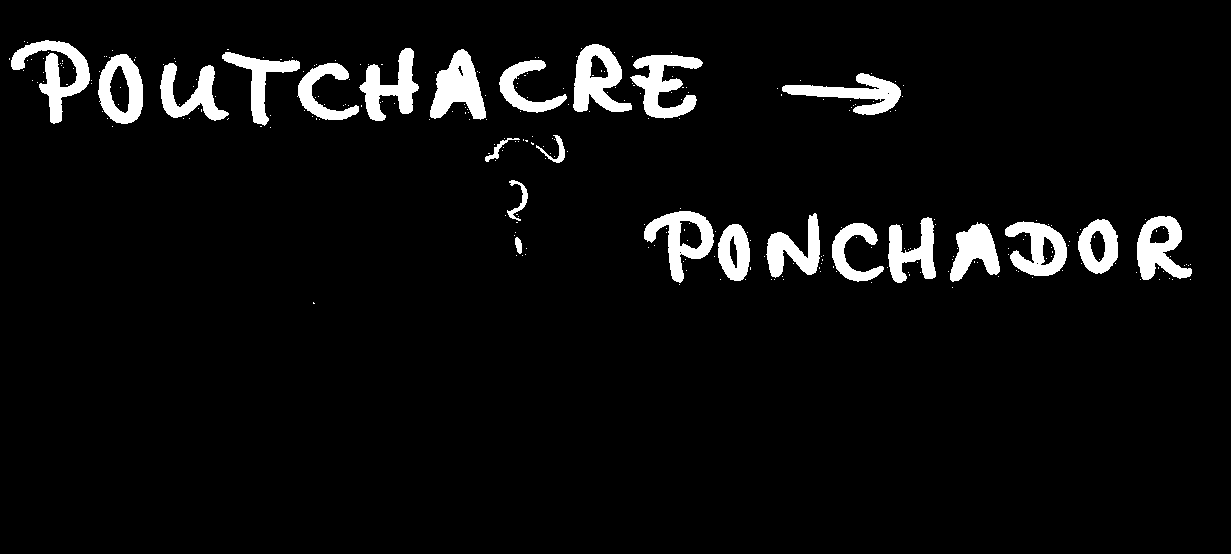 POUTCHACRE →
?
PONCHADOR